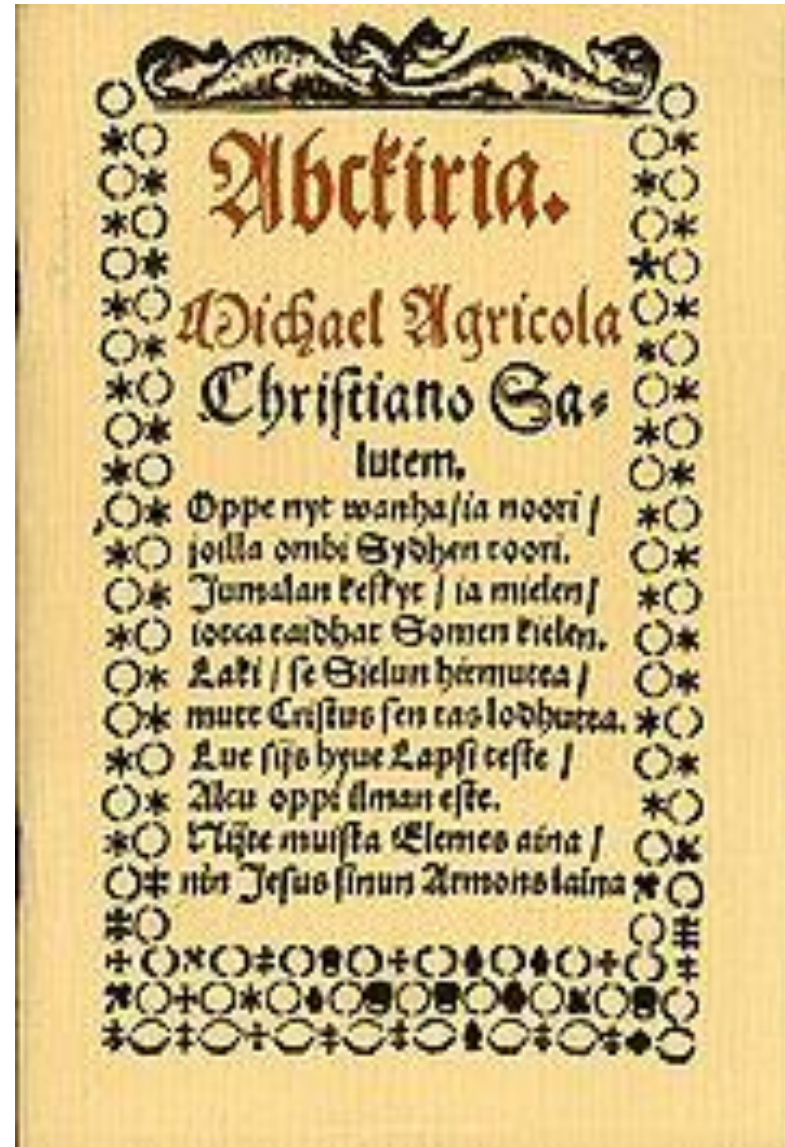 Abckiria.
Michael Agricola
Christiano Sa⸗
lutem.
Oppe nyt wanha/ia noori /
joilla ombi Sydhen toori.
Jumalan keskyt / ia mielen/
iotca taidhat Somen kielen.
Laki / se Sielun hirmutta /
mutt Cristus sen tas lodhutta.
Lue sijs hyue Lapsi teste /
Alcu oppi ilman este.
Nijte muista Elemes aina /
nin Jesus sinun Armons laina